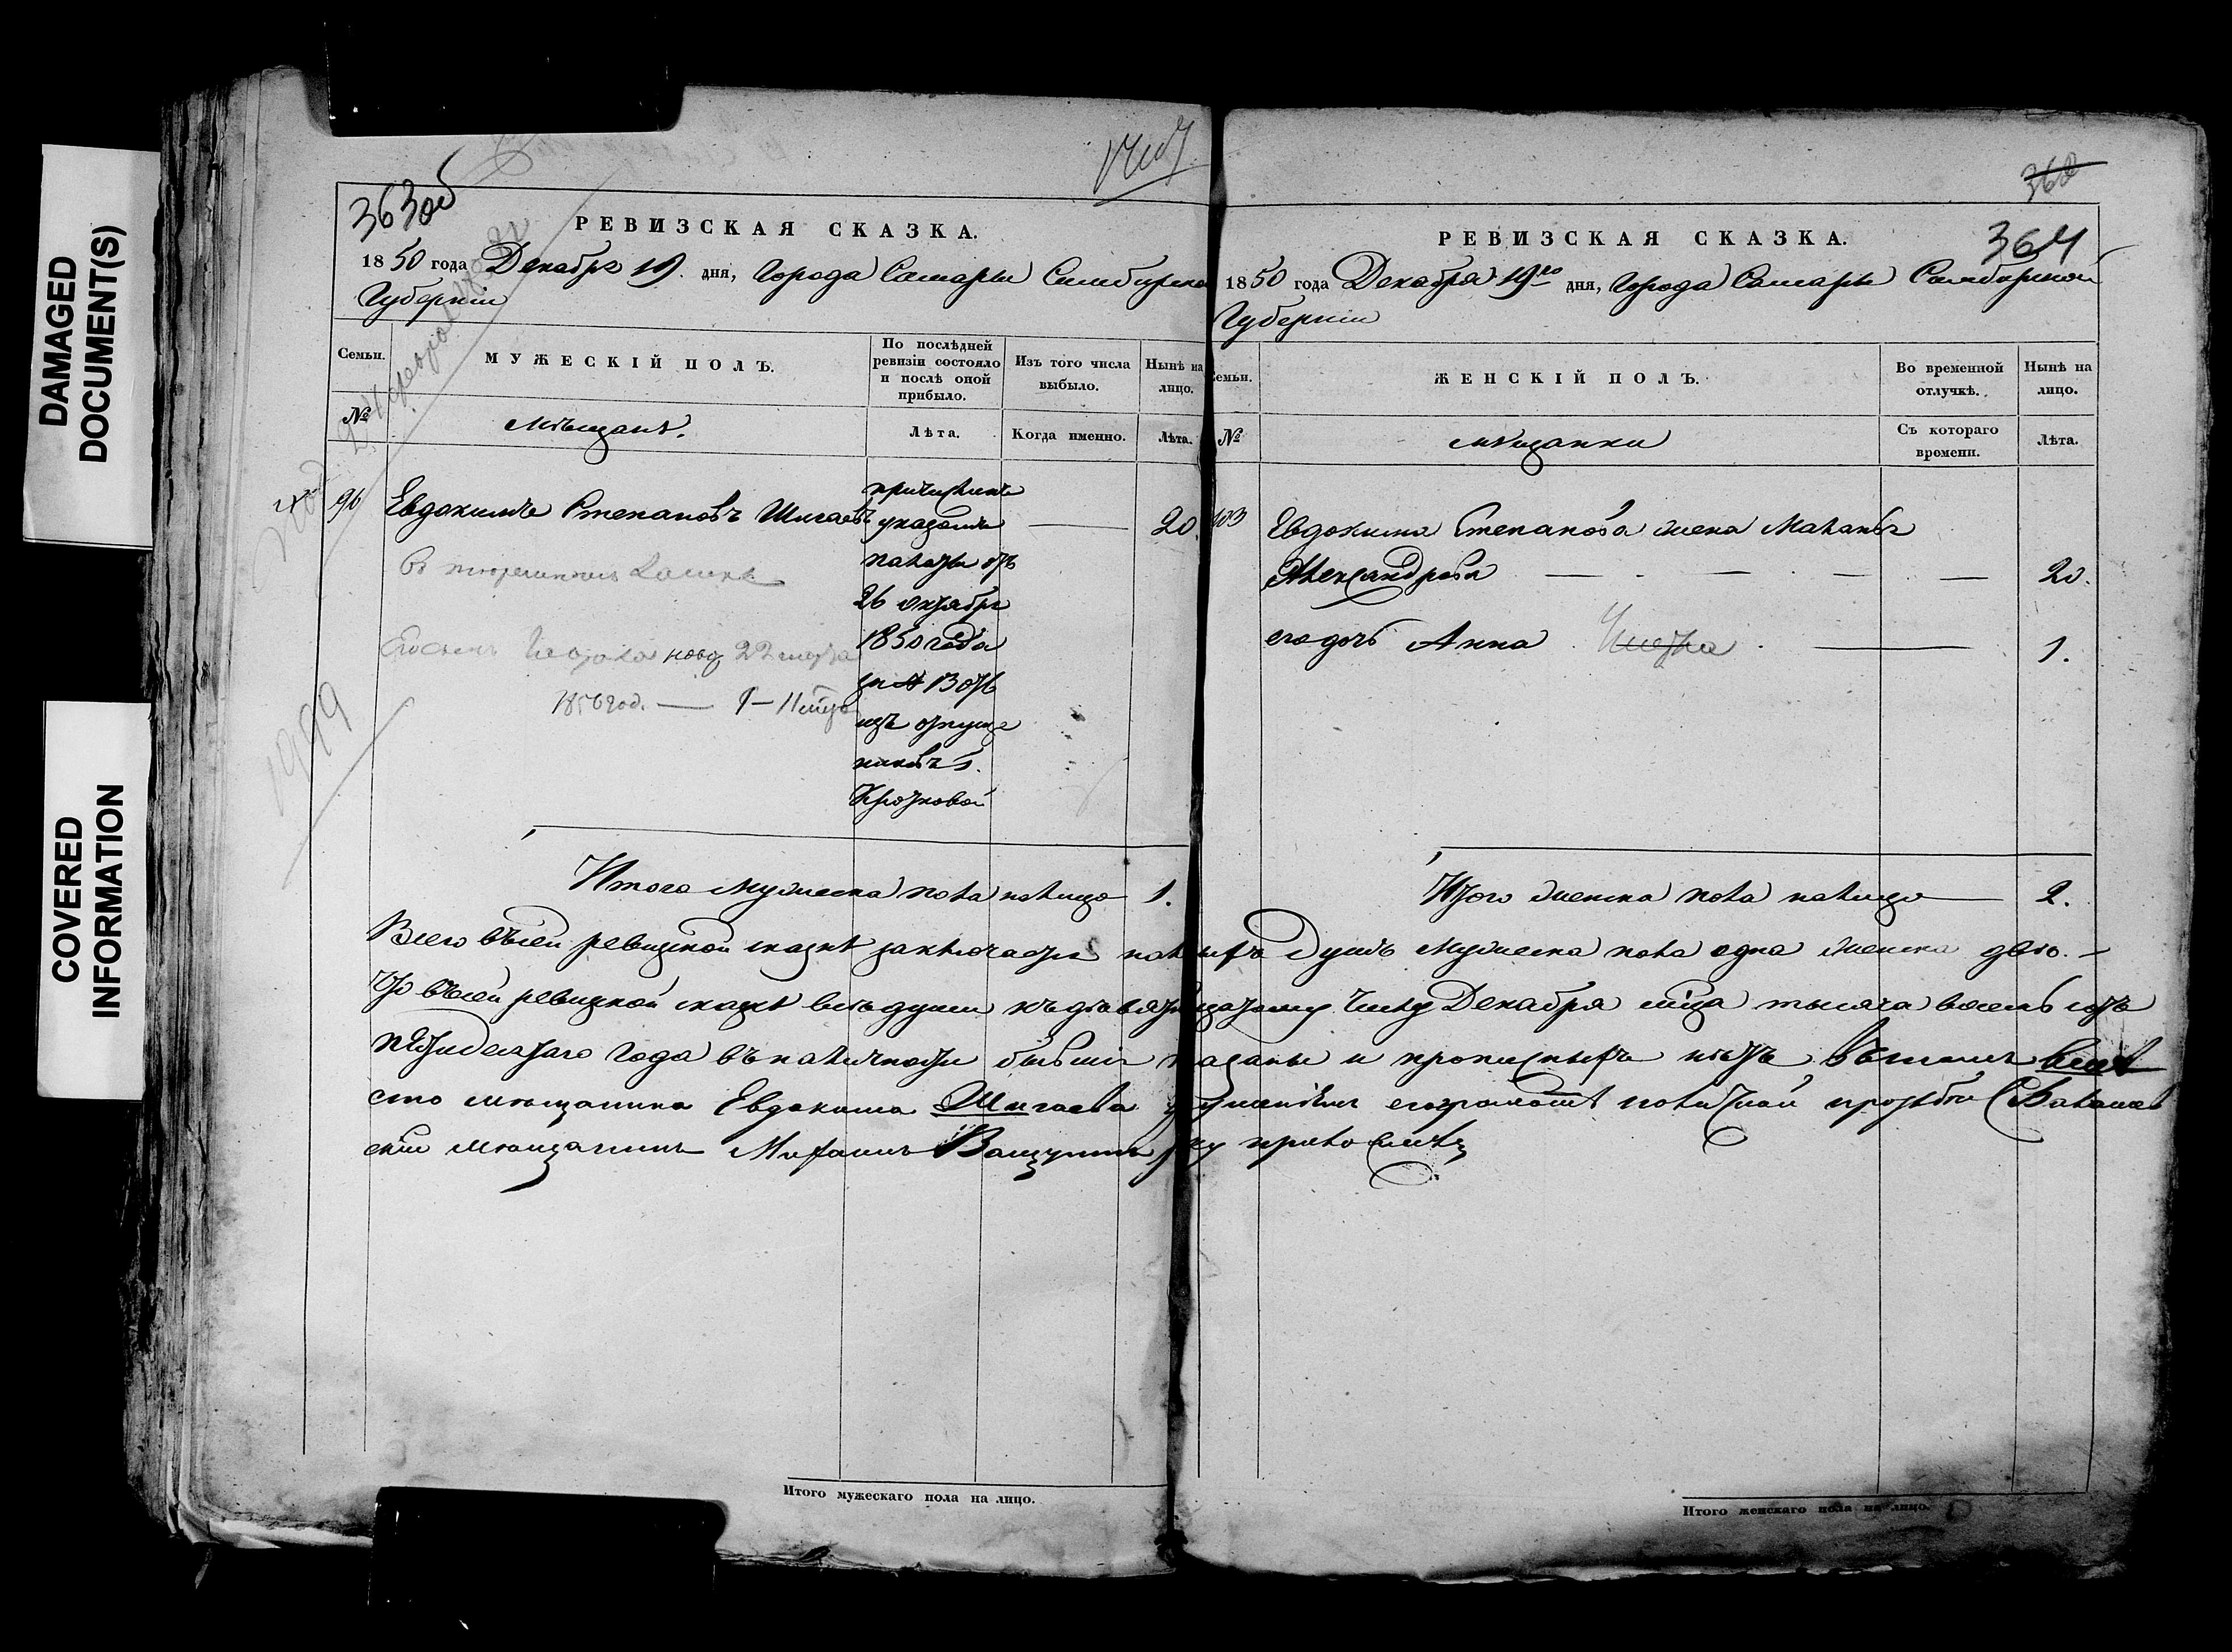 DAMAGED
DOCUMENT(S)
COVERED
INFORMATION
363об
РЕВИЗСКАЯ СКАЗКА.
1850 года Декабря 19 дня, Города Самары Симбирской
Губернiи
Семьи.
МУЖЕСКІЙ ПОЛЪ.
По послѣдней ревизіи состояло и послѣ оной прибыло.
Изъ того числа выбыло.
Нынѣ на лицо.
№
мѣщанѣ.
Лѣта.
Когда именно.
Лѣта.
96
Евдокимъ Степановъ Шигаевъ
20.
причисленъ
указомъ
палаты отъ
26 октября
1850 года
за № 13076
изъ отпуще
никовъ г.
Кротковой
22 марта
1850 год.
1899
Итого мужеска пола налицо 1.
360
364
РЕВИЗСКАЯ СКАЗКА.
1850 года Декабря 19го дня, Города Самары Симбирской
Губерніи
Семьи.
ЖЕНСКІЙ ПОЛЪ.
Во временной отлучкѣ.
Нынѣ на лицо.
№
мѣщанки
Съ котораго времени.
Лѣта.
103
Евдокима Степанова жена Маланья
Александрова 20.
его дочь Анна 1.
Итого женска пола налицо 2.
Всего въ сей ревизкой сказкѣ заключается налицо душъ мужеска пола одна женска двѣ.
Что въ сей ревизкой сказкѣ всѣ души къ девятнадцатому числу Декабря мѣсяца тысяча восемь сотъ
пятидесятаго года въ наличности бывшія показаны и прописныхъ нѣтъ въ томъ вмѣ
сто мѣщанина Евдокима Шигаева неумѣніемъ его грамотѣ по личной прозьбѣ Балашов
скій мѣщанинъ руку приложилъ
Итого мужескаго пола на лицо.
Итого женскаго пола на лицо.